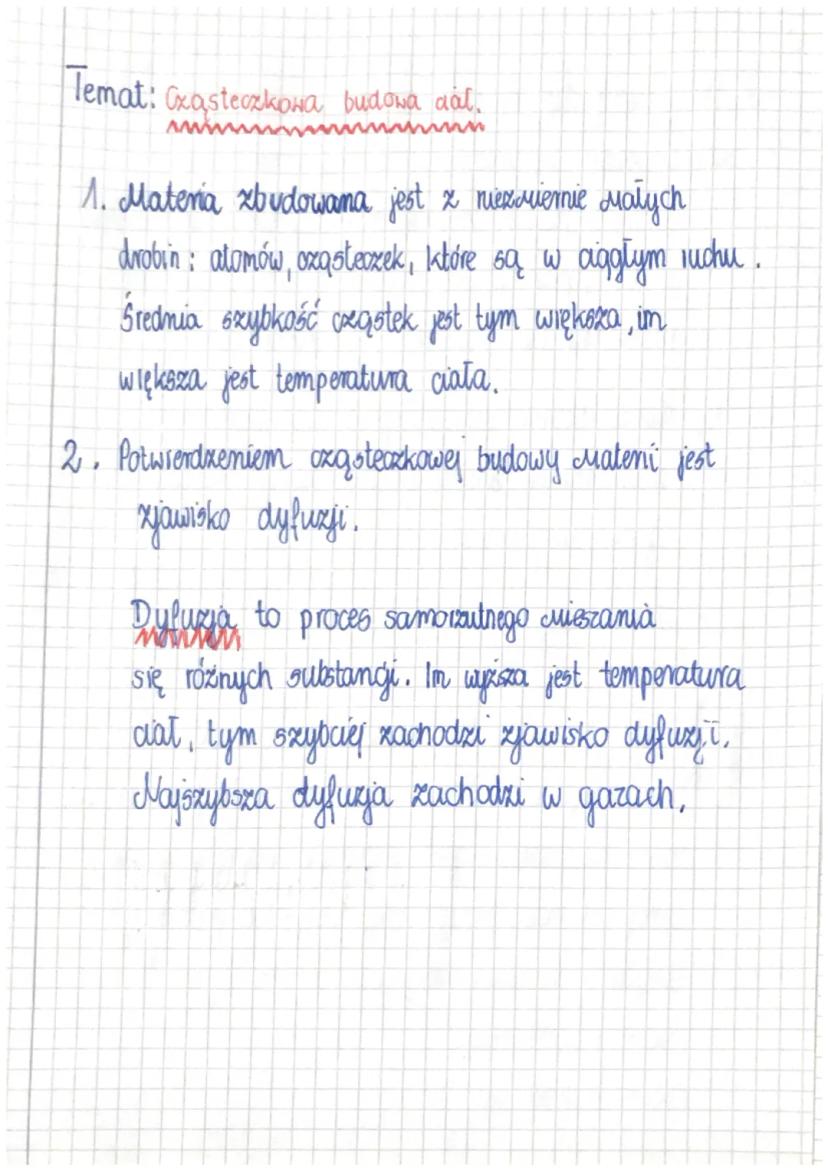 Temat: Cząsteczkowa budowa ciał.
1. Materia zbudowana jest z niezmiernie małych
drobin: atomów, cząsteczek, które są w ciągłym ruchu.
Średnia szybkość cząstek jest tym większa, im
większa jest temperatura ciała.
2. Potwierdzeniem cząsteczkowej budowy materii jest
zjawisko dyfuzji.
Dyfuzja to proces samorzutnego mieszania
się różnych substancji. Im wyższa jest temperatura
ciał, tym szybciej zachodzi zjawisko dyfuzji.
Najszybsza dyfuzja zachodzi w gazach.